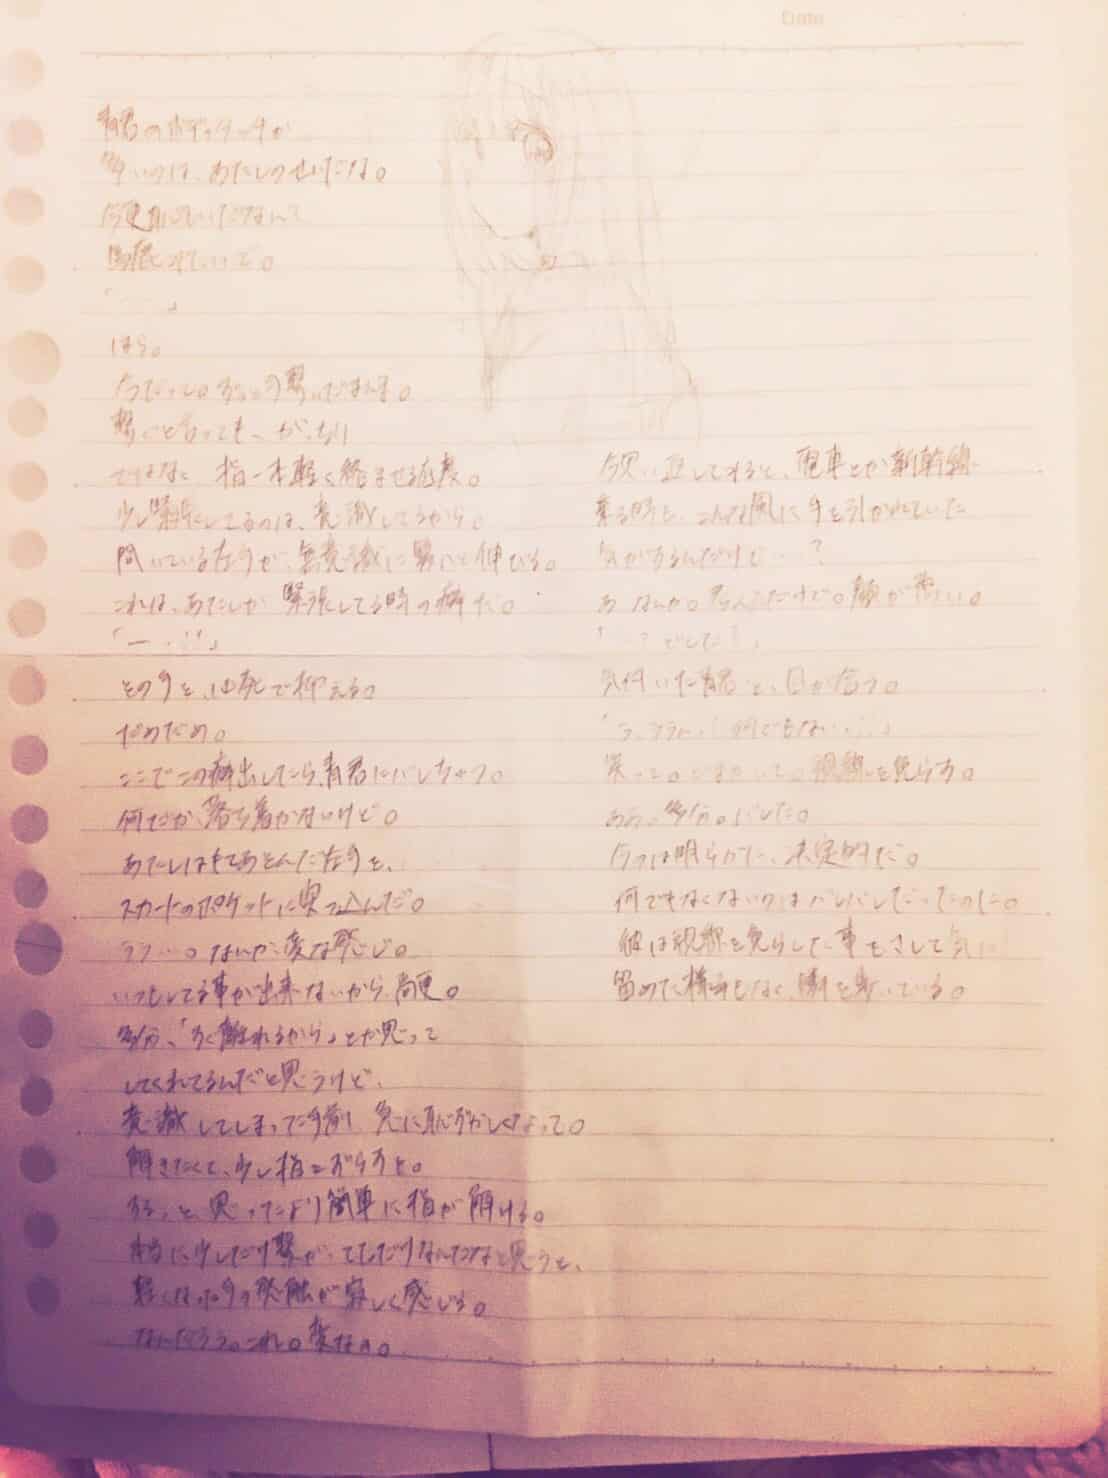 Date
青君のボディータッチが
多いのは、あたしのせいだな。
今更気づいただなんて
「……」
ほら。
今だって。ずっと手繋いだまんま。
繋ぐと言っても、がっちり
ではなく、指一本軽く絡ませる程度。
少し緊張してるのは、意識してるから。
開いている左手が、無意識に男へと伸びる。
これは、あたしが緊張してる時の癖だ。
「―…!!」
その手を、必死で抑える。
だめだめ。
ここでこの癖出したら、青君にバレちゃう。
何だか、落ち着かないけど。
あたしはもてあそんだ左手を、
スカートのポケットに突っ込んだ。
ううー…。なんか、変な感じ。
いつもしてる事が出来ないから、尚更。
多分、「すぐ離れるから」とか思って
してくれてるんだと思うけど、
意識してしまった手前、急に恥ずかしくなって。
解きたくて、少し指をずらすと。
するっと、思ったより簡単に指が解ける。
本当に少しだけ繋がってただけなんだなと思うと、
軽くなった手の感触が寂しく感じる。
なんだろう。これ。変なの。
今思い返してみると、電車とか新幹線
乗る時も、こんな風に手を引かれていた
気がするんだけど……?
あ なんか。考えただけで。顔が熱い。
「…?どした?」
気付いた青君と、目が合う。
「う、ううん…!何でもない…!!」
笑って。ごまかして。視線を逸らす。
ああ。多分。バレた。
今のは明らかに、決定的だ。
何でもなくないのはバレバレだったのに。
彼は視線を逸らした事もさして気に
留めた様子もなく、隣を歩いている。